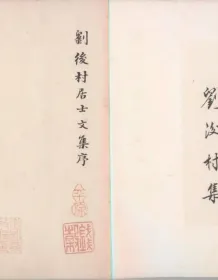 劉後村集
劉後村居士文集序